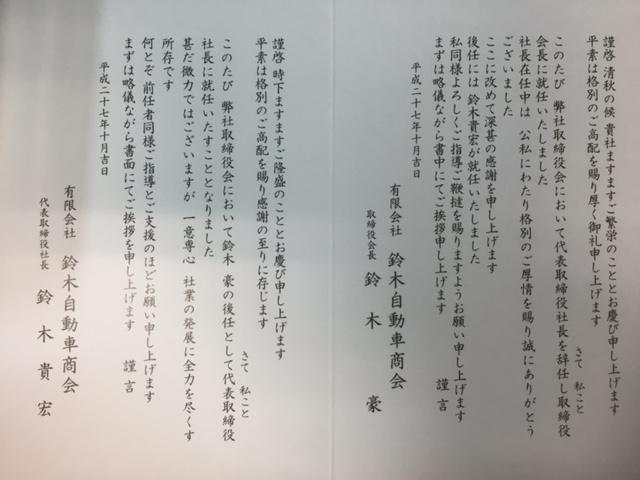 謹啓 清秋の候 貴社ますますご繁栄のこととお慶び申し上げます
平素は格別のご高配を賜り厚く御礼申し上げます
さて 私こと
このたび 弊社取締役会において代表取締役社長を辞任し取締役
会長に就任いたしました
社長在任中は 公私にわたり格別のご厚情を賜り誠にありがとう
ございました
ここに改めて深甚の感謝を申し上げます
後任には 鈴木貴宏が就任いたしました
私同様よろしくご指導ご鞭撻を賜りますようお願い申し上げます
まずは略儀ながら書中にてご挨拶申し上げます 謹言
平成二十七年十月吉日
有限会社 鈴木自動車商会
取締役会長 鈴木 豪
謹啓 時下ますますご隆盛のこととお慶び申し上げます
平素は格別のご高配を賜り感謝の至りに存じます
さて 私こと
このたび 弊社取締役会において鈴木 豪の後任として代表取締役
社長に就任いたすこととなりました
甚だ微力ではございますが 一意専心 社業の発展に全力を尽くす
所存です
何とぞ 前任者同様ご指導とご支援のほどお願い申し上げます
まずは略儀ながら書面にてご挨拶を申し上げます 謹言
平成二十七年十月吉日
有限会社 鈴木自動車商会
代表取締役社長 鈴木貴宏